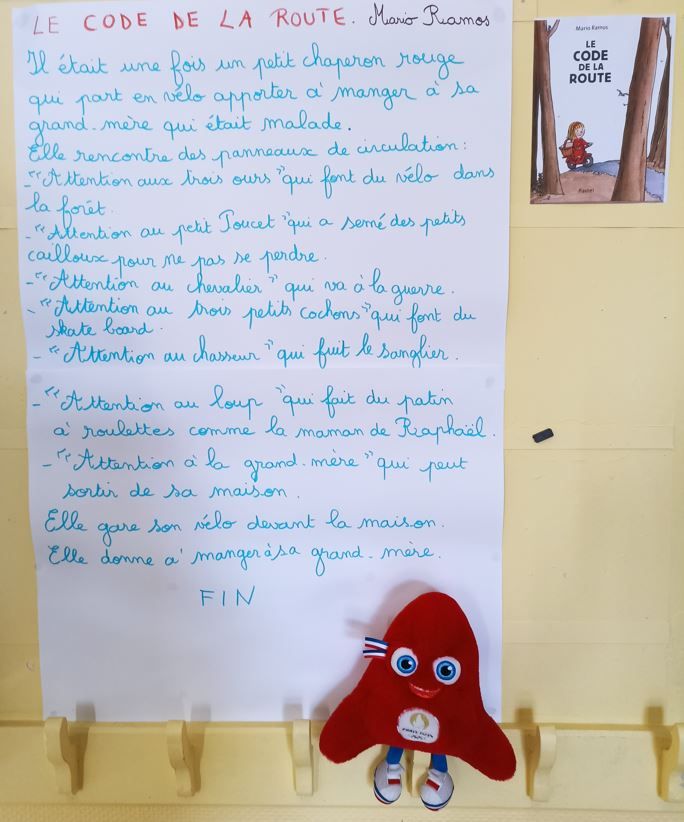 LE CODE DE LA ROUTE. Mario Ramos
Il était une fois un petit chaperon rouge
qui part en vélo apporter à manger à sa
grand-mère qui était malade.
Elle rencontre des panneaux de circulation:
-"Attention aux trois ours" qui font du vélo dans
la forêt.
-"Attention au petit Poucet" qui a semé des petits
cailloux pour ne pas se perdre.
-"Attention au chevalier" qui va à la guerre.
-"Attention au trois petits cochons" qui font du
skate board.
-"Attention au chasseur" qui fuit le sanglier.
-"Attention au loup" qui fait du patin
à roulettes comme la maman de Raphaël.
-"Attention à la grand-mère" qui peut
sortir de sa maison.
Elle gare son vélo devant la maison.
Elle donne à manger à sa grand-mère.
FIN
Mario Ramos
LE
CODE
DE LA
ROUTE
Pastel
PARIS 2024